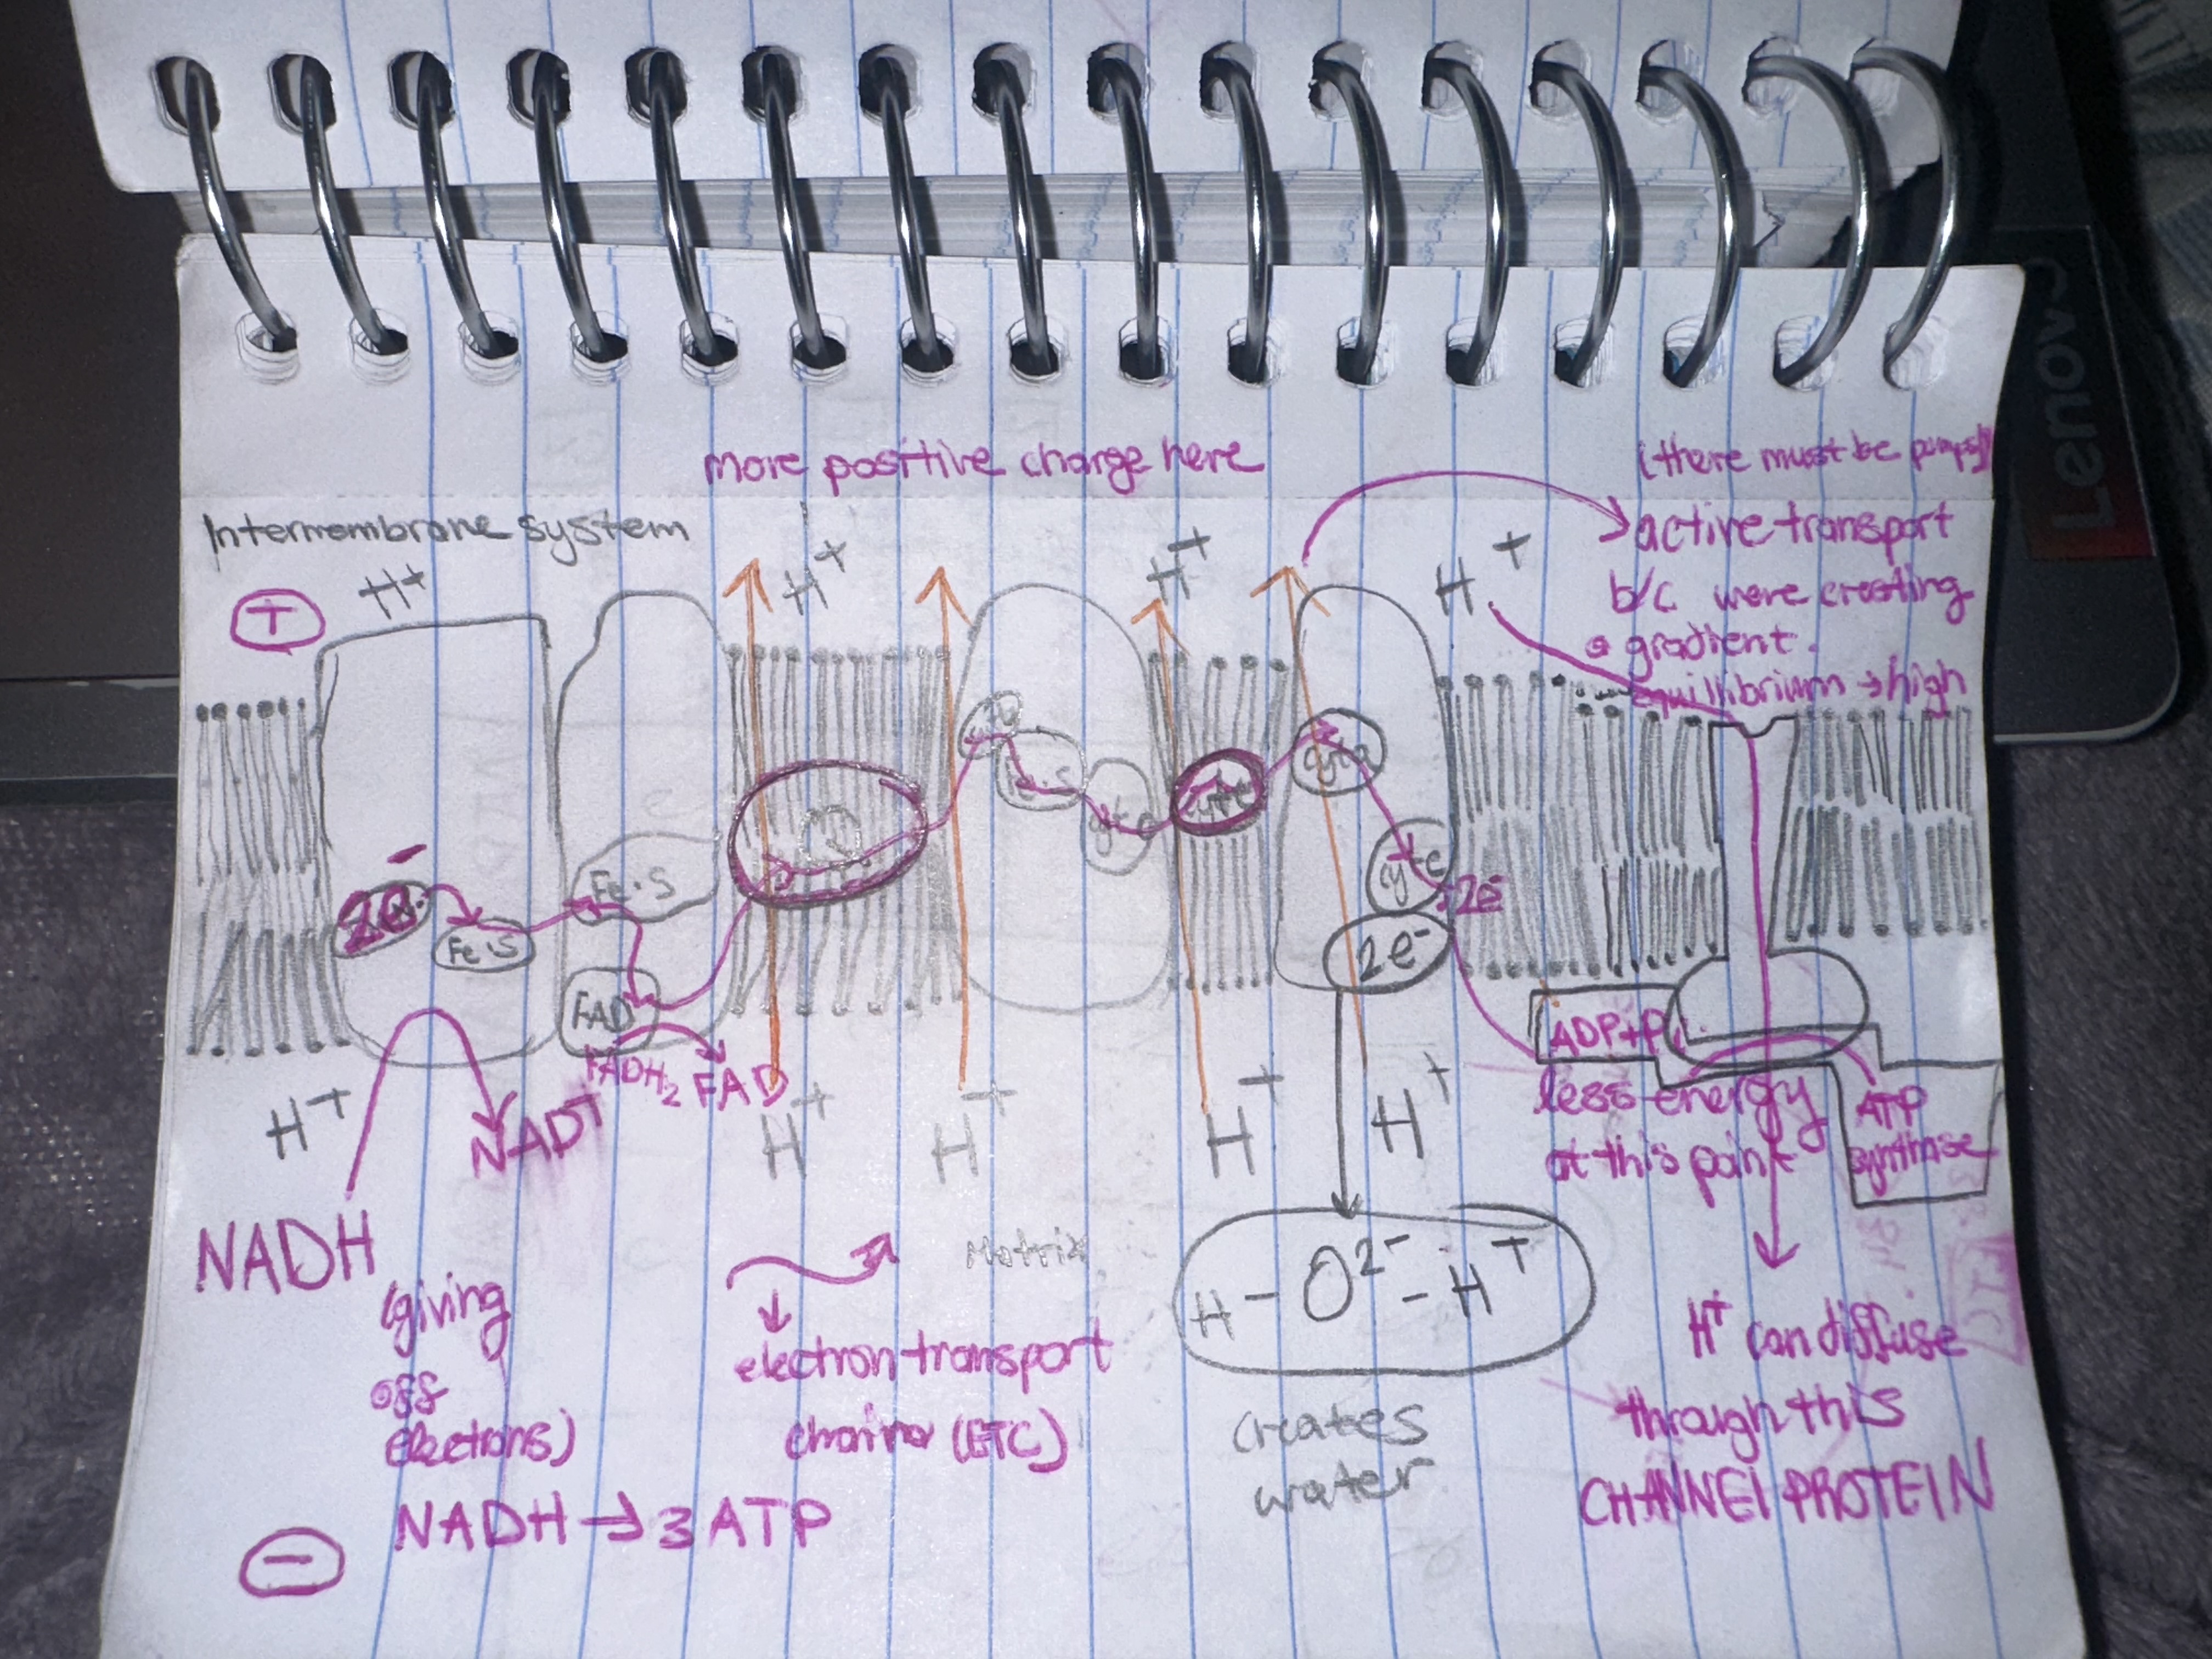 Lenovo
more positive charge here
(there must be pumps)
Intermembrane system
+
H+
H+
H+
H+
active transport
b/c were creating
a gradient.
equillibrium → high
2e-
Fe·S
Fe·S
FAD
Q
cyt c
2e-
2e-
FADH2 FAD
NAD+
H+
H+
H+
H+
H+
NADH
(giving
off
electrons)
ADP+Pi
less energy
at this point
ATP
synthase
Matrix
electron transport
H-O2--H+
creates
water
H+ can diffuse
through this
CHANNEL PROTEIN
NADH → 3 ATP
-